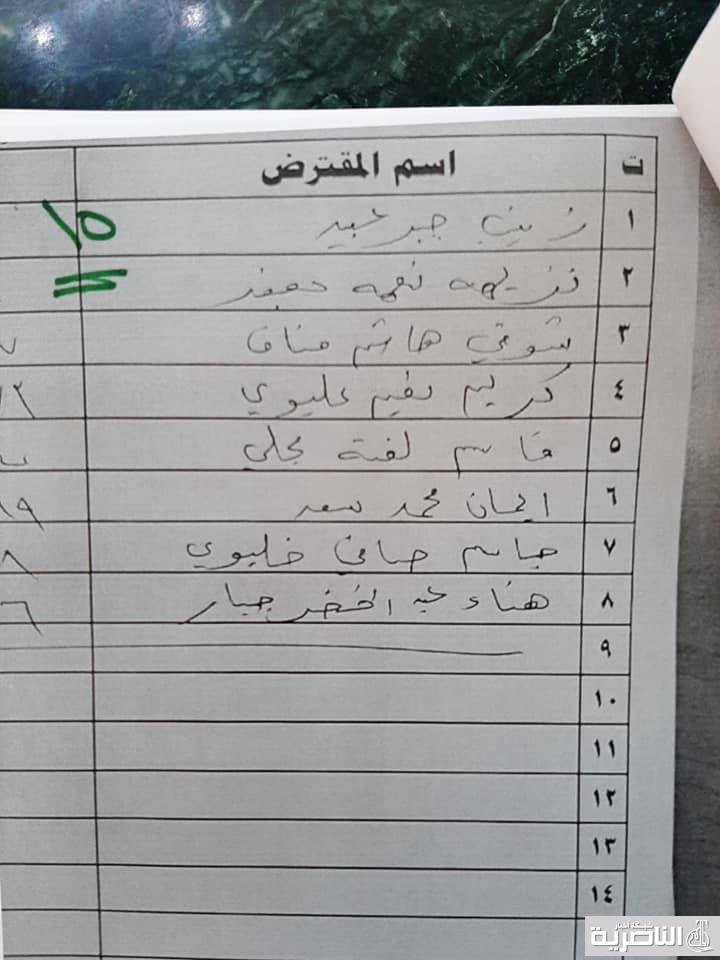 ت اسم المقترض
١ زينب جبر عبيد
١٥
٢ نزيهه نعمه جعفر
٣ شوقي هاشم مناف
٤ كريم نعيم عليوي
٥ قاسم لفتة مجلي
٦ ايمان محمد سعد
٧ جاسم صافي خليوي
٨ هناء عبد الخضر جبار
٩
١٠
١١
١٢
١٣
١٤
شبكة أخبار
الناصرية